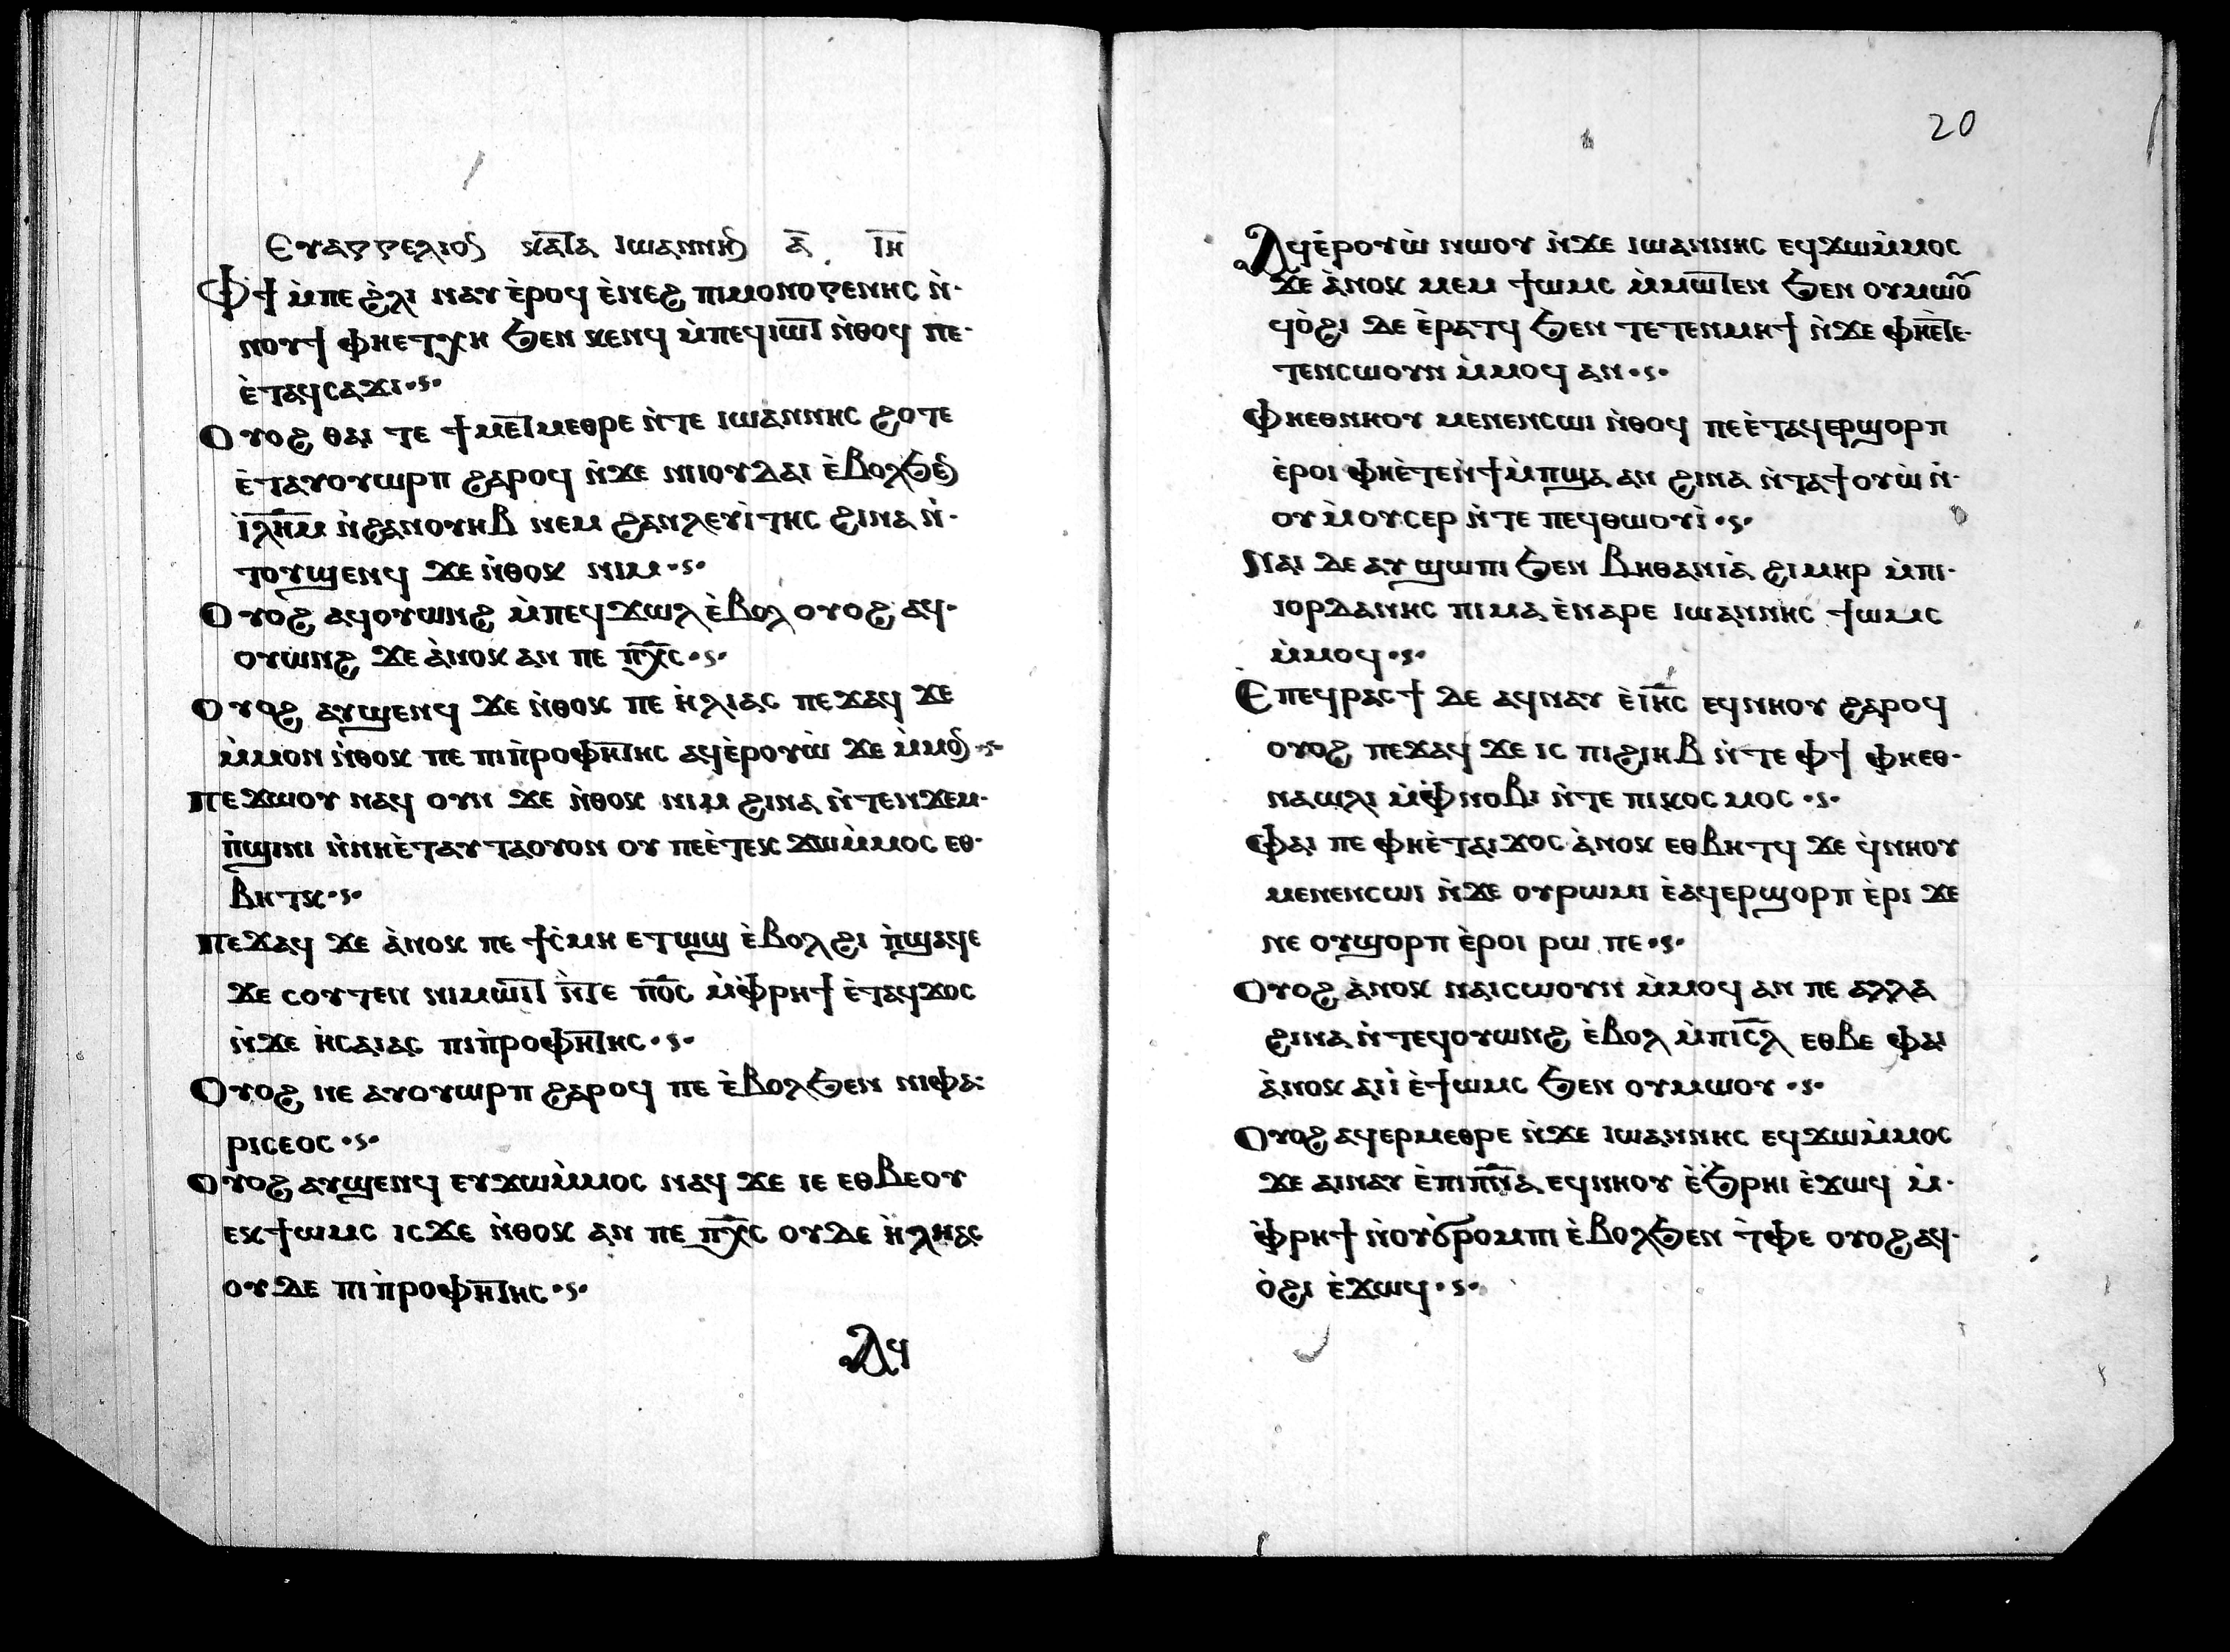 Ⲉⲩⲁⲅⲅⲉⲗⲓⲟⲛ ⲕⲁⲧⲁ ⲓⲱⲁⲛⲛⲏⲛ ⲁ̅. ⲓ̅ⲏ̅
Ⲫϯ ⲙ̀ⲡⲉ ϩ̀ⲗⲓ ⲛⲁⲩ ⲉ̀ⲣⲟϥ ⲉ̀ⲛⲉϩ ⲡⲓⲙⲟⲛⲟⲅⲉⲛⲏⲥ ⲛ̀·
ⲛⲟⲩϯ ⲫⲏⲉⲧⲭⲏ ϧⲉⲛ ⲕⲉⲛϥ ⲙ̀ⲡⲉϥⲓⲱⲧ ⲛ̀ⲑⲟϥ ⲡⲉ·
ⲉ̀ⲧⲁϥⲥⲁϫⲓ·ⲋ·
Ⲟⲩⲟϩ ⲑⲁⲓ ⲧⲉ ϯⲙⲉⲧⲙⲉⲑⲣⲉ ⲛ̀ⲧⲉ ⲓⲱⲁⲛⲛⲏⲥ ϩⲟⲧⲉ
ⲉ̀ⲧⲁⲩⲟⲩⲱⲣⲡ ϩⲁⲣⲟϥ ⲛ̀ϫⲉ ⲛⲓⲓⲟⲩⲇⲁⲓ ⲉ̀ⲃⲟⲗϧⲉⲛ
ⲓ̀ⲗ̅ⲏ̅ⲙ̅ ⲛ̀ϩⲁⲛⲟⲩⲏⲃ ⲛⲉⲙ ϩⲁⲛⲗⲉⲩⲓ̀ⲧⲏⲥ ϩⲓⲛⲁ ⲛ̀·
ⲧⲟⲩϣⲉⲛϥ ϫⲉ ⲛ̀ⲑⲟⲕ ⲛⲓⲙ·ⲋ·
Ⲟⲩⲟϩ ⲁϥⲟⲩⲱⲛϩ ⲙ̀ⲡⲉϥϫⲱⲗ ⲉ̀ⲃⲟⲗ ⲟⲩⲟϩ ⲁϥ·
ⲟⲩⲱⲛϩ ϫⲉ ⲁ̀ⲛⲟⲕ ⲁⲛ ⲡⲉ ⲡ̅ⲭ̅ⲥ·ⲋ·
Ⲟⲩⲟϩ ⲁⲩϣⲉⲛϥ ϫⲉ ⲛ̀ⲑⲟⲕ ⲡⲉ ⲏ̀ⲗⲓⲁⲥ ⲡⲉϫⲁϥ ϫⲉ
ⲙ̀ⲙⲟⲛ ⲛ̀ⲑⲟⲕ ⲡⲉ ⲡⲓⲡ̀ⲣⲟⲫⲏⲧⲏⲥ ⲁϥⲉ̀ⲣⲟⲩⲱ̀ ϫⲉ ⲙ̀ⲙⲟⲛ·ⲋ·
Ⲡⲉϫⲱⲟⲩ ⲛⲁϥ ⲟⲩⲛ ϫⲉ ⲛ̀ⲑⲟⲕ ⲛⲓⲙ ϩⲓⲛⲁ ⲛ̀ⲧⲉⲛϫⲉⲙ·
ⲡ̀ϣⲓⲛⲓ ⲛ̀ⲛⲏⲉ̀ⲧⲁⲩⲧⲁⲟⲩⲟⲛ ⲟⲩ ⲡⲉⲉ̀ⲧⲉⲕ ϫⲱⲙ̀ⲙⲟⲥ ⲉⲑ·
ⲃⲏⲧⲕ·ⲋ·
Ⲡⲉϫⲁϥ ϫⲉ ⲁ̀ⲛⲟⲕ ⲡⲉ ϯⲥ̀ⲙⲏ ⲉⲧⲱϣ ⲉ̀ⲃⲟⲗϩⲓ ⲡ̀ϣⲁϥⲉ
ϫⲉ ⲥⲟⲩⲧⲉⲛ ⲡⲓⲙⲱⲓⲧ ⲛ̀ⲧⲉ ⲡ̅ⲟ̅ⲥ̅ ⲙ̀ⲫ̀ⲣⲏϯ ⲉ̀ⲧⲁϥϫⲟⲥ
ⲛ̀ϫⲉ ⲏ̀ⲥⲁⲓⲁⲥ ⲡⲓⲡ̀ⲣⲟⲫⲏⲧⲏⲥ·ⲋ·
Ⲟⲩⲟϩ ⲛⲉ ⲁⲩⲟⲩⲱⲣⲡ ϩⲁⲣⲟϥ ⲡⲉ ⲉ̀ⲃⲟⲗϧⲉⲛ ⲛⲓⲫⲁ:
ⲣⲓⲥⲉⲟⲥ·ⲋ·
Ⲟⲩⲟϩ ⲁⲩϣⲉⲛϥ ⲉⲩϫⲱⲙ̀ⲙⲟⲥ ⲛⲁϥ ϫⲉ ⲓⲉ ⲉⲑⲃⲉⲟⲩ
ⲉⲕϯⲱⲙⲥ ⲓⲥϫⲉ ⲛ̀ⲑⲟⲕ ⲁⲛ ⲡⲉ ⲡ̅ⲭ̅ⲥ ⲟⲩⲇⲉ ⲏ̀ⲗⲏⲁⲥ
ⲟⲩⲇⲉ ⲡⲓⲡ̀ⲣⲟⲫⲏⲧⲏⲥ·ⲋ·
Ⲁϥ
20
Ⲁϥⲉ̀ⲣⲟⲩⲱ̀ ⲛⲱⲟⲩ ⲛ̀ϫⲉ ⲓⲱⲁⲛⲛⲏⲥ ⲉϥϫⲱⲙ̀ⲙⲟⲥ
ϫⲉ ⲁ̀ⲛⲟⲕ ⲙⲉⲛ ϯⲱⲙⲥ ⲙ̀ⲙⲱⲧⲉⲛ ϧⲉⲛ ⲟⲩⲙⲱⲟⲩ
ϥⲟ̀ϩⲓ ⲇⲉ ⲉ̀ⲣⲁⲧϥ ϧⲉⲛ ⲧⲉⲧⲉⲛⲙⲏϯ ⲛ̀ϫⲉ ⲫⲏⲉ̀ⲧⲉ·
ⲧⲉⲛⲥⲱⲟⲩⲛ ⲙ̀ⲙⲟϥ ⲁⲛ·ⲋ·
Ⲫⲏⲉⲑⲛⲏⲟⲩ ⲙⲉⲛⲉⲛⲥⲱⲓ ⲛ̀ⲑⲟϥ ⲡⲉⲉ̀ⲧⲁϥⲉⲣϣⲟⲣⲡ
ⲉ̀ⲣⲟⲓ ⲫⲏⲉ̀ⲧⲉⲛ̀ϯⲙ̀ⲡϣⲁ ⲁⲛ ϩⲓⲛⲁ ⲛ̀ⲧⲁϯⲟⲩⲱ̀ ⲛ̀·
ⲟⲩ ⲙ̀ⲟⲩⲥⲉⲣ ⲛ̀ⲧⲉ ⲡⲉϥⲑⲱⲟⲩⲓ̀·ⲋ·
Ⲛⲁⲓ ⲇⲉ ⲁⲩ ϣⲱⲡⲓ ϧⲉⲛ ⲃⲏⲑⲁⲛⲓⲁ̀ ϩⲓⲙⲏⲣ ⲙ̀ⲡⲓ·
ⲓⲟⲣⲇⲁⲛⲏⲥ ⲡⲓⲙⲁ ⲉ̀ⲛⲁⲣⲉ ⲓⲱⲁⲛⲛⲏⲥ ϯⲱⲙⲥ
ⲙ̀ⲙⲟϥ·ⲋ·
Ⲉⲡⲉϥⲣⲁⲥϯ ⲇⲉ ⲁϥⲛⲁⲩ ⲉ̀ⲓ̅ⲏ̅ⲥ ⲉϥⲛⲏⲟⲩ ϩⲁⲣⲟϥ
ⲟⲩⲟϩ ⲡⲉϫⲁϥ ϫⲉ ⲓⲥ ⲡⲓϩⲓⲏⲃ ⲛ̀ⲧⲉ ⲫϯ ⲫⲏⲉⲑ·
ⲛⲁⲱⲗⲓ ⲙ̀ⲫ̀ⲛⲟⲃⲓ ⲛ̀ⲧⲉ ⲡⲓⲕⲟⲥⲙⲟⲥ ·ⲋ·
Ⲫⲁⲓ ⲡⲉ ⲫⲏⲉ̀ⲧⲁⲓϫⲟⲥ ⲁ̀ⲛⲟⲕ ⲉⲑⲃⲏⲧϥ ϫⲉ ϥ̀ⲛⲏⲟⲩ
ⲙⲉⲛⲉⲛⲥⲱⲓ ⲛ̀ϫⲉ ⲟⲩⲣⲱⲙⲓ ⲉ̀ⲁϥⲉⲣϣⲟⲣⲡ ⲉ̀ⲣⲓ ϫⲉ
ⲛⲉ ⲟⲩϣⲟⲣⲡ ⲉ̀ⲣⲟⲓ ⲣⲱ ⲡⲉ·ⲋ·
Ⲟⲩⲟϩ ⲁ̀ⲛⲟⲕ ⲛⲁⲓⲥⲱⲟⲩⲛ ⲙ̀ⲙⲟϥ ⲁⲛ ⲡⲉ ⲁⲗⲗⲁ
ϩⲓⲛⲁ ⲛ̀ⲧⲉϥⲟⲩⲱⲛϩ ⲉ̀ⲃⲟⲗ ⲙ̀ⲡⲓⲥ̅ⲗ ⲉⲑⲃⲉ ⲫⲁⲓ
ⲁ̀ⲛⲟⲕ ⲁⲓⲓ̀ ⲉ̀ϯⲱⲙⲥ ϧⲉⲛ ⲟⲩⲙⲱⲟⲩ ·ⲋ·
Ⲟⲩⲟϩ ⲁϥⲉⲣⲙⲉⲑⲣⲉ ⲛ̀ϫⲉ ⲓⲱⲁⲛⲛⲏⲥ ⲉϥϫⲱⲙ̀ⲙⲟⲥ
ϫⲉ ⲁⲓⲛⲁⲩ ⲉ̀ⲡⲓⲡ̅ⲛ̅ⲁ ⲉϥⲛⲏⲟⲩ ⲉ̀ϧⲣⲏⲓ ⲉ̀ϫⲱϥ ⲙ̀·
ⲫ̀ⲣⲏϯ ⲛ̀ⲟⲩϭⲣⲟⲙⲡⲓ ⲉ̀ⲃⲟⲗϧⲉⲛ ⲧ̀ⲫⲉ ⲟⲩⲟϩ ⲁϥ·
ⲟ̀ϩⲓ ⲉ̀ϫⲱϥ·ⲋ·